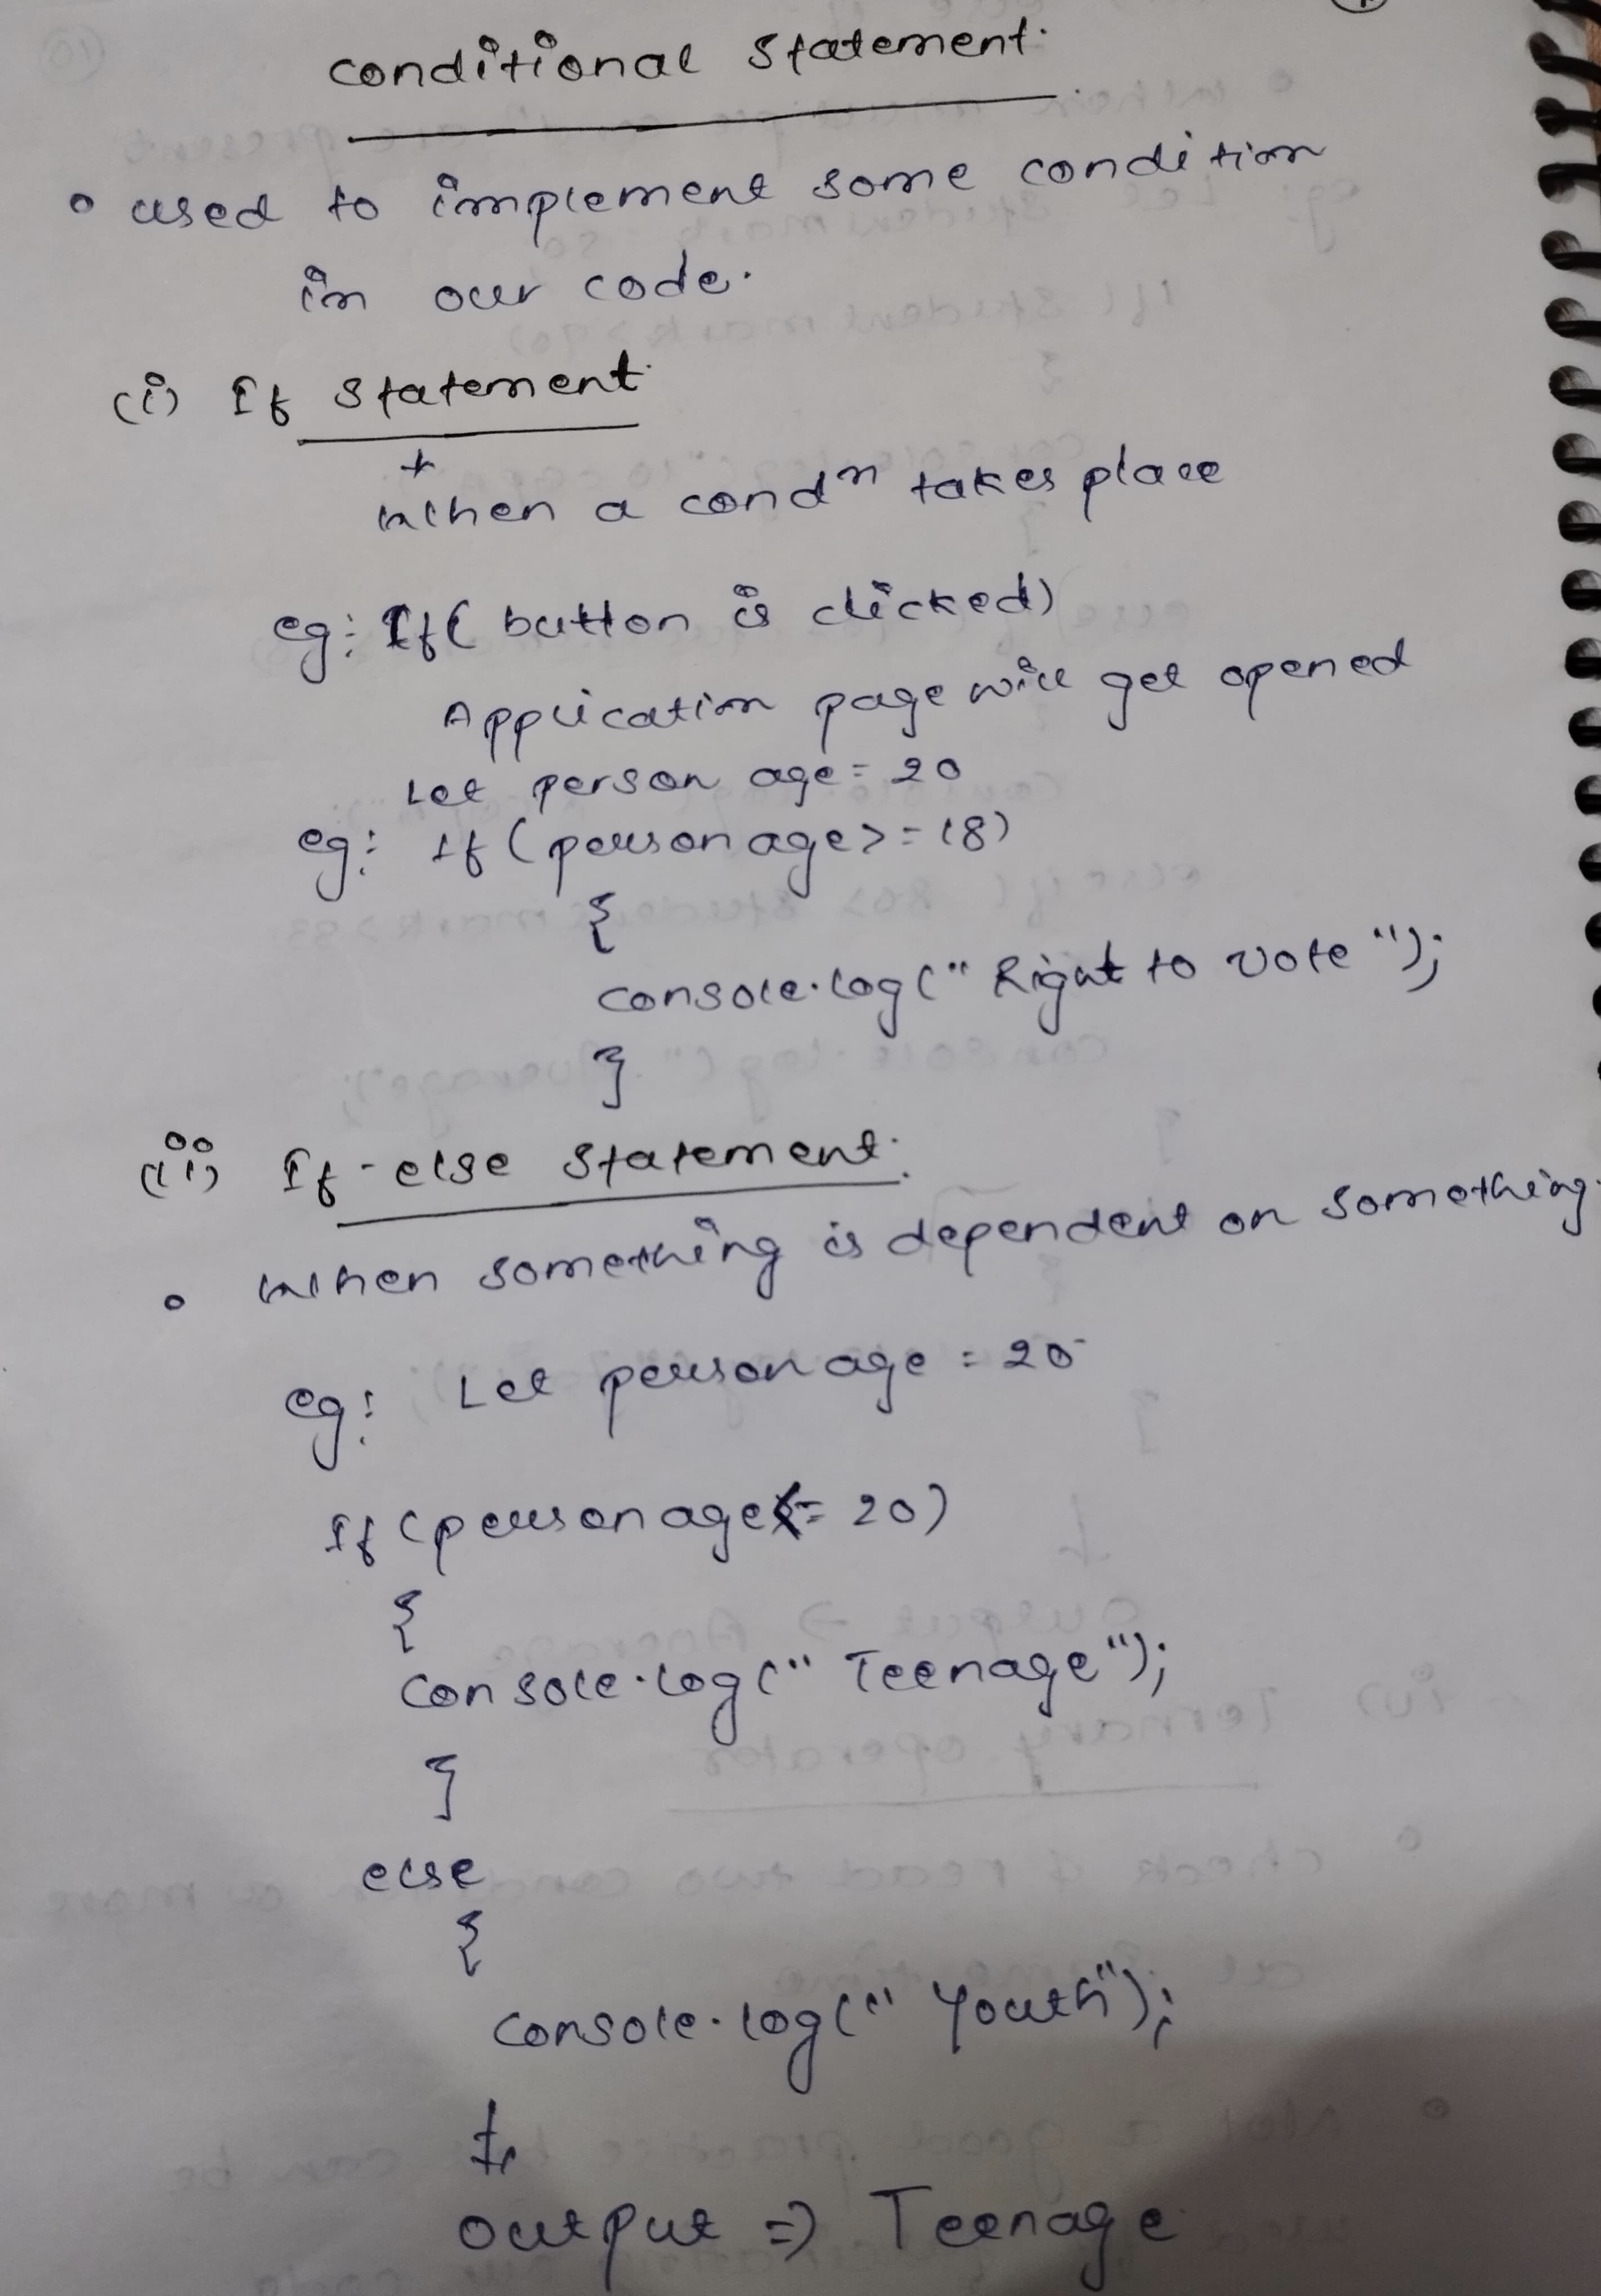 conditional statement.
• used to implement some condition
in our code.
(i) If statement.
When a condn takes place
eg: If( button is clicked)
Application page will get opened
Let person age = 20
eg: If (person age >= 18)
{
console.log(" Right to vote ");
}
(ii) If-else statement.
• When something is dependent on something.
eg: Let person age = 20
If (person age <= 20)
{
console.log(" Teenage");
}
else
{
console.log(" Youth");
output => Teenage